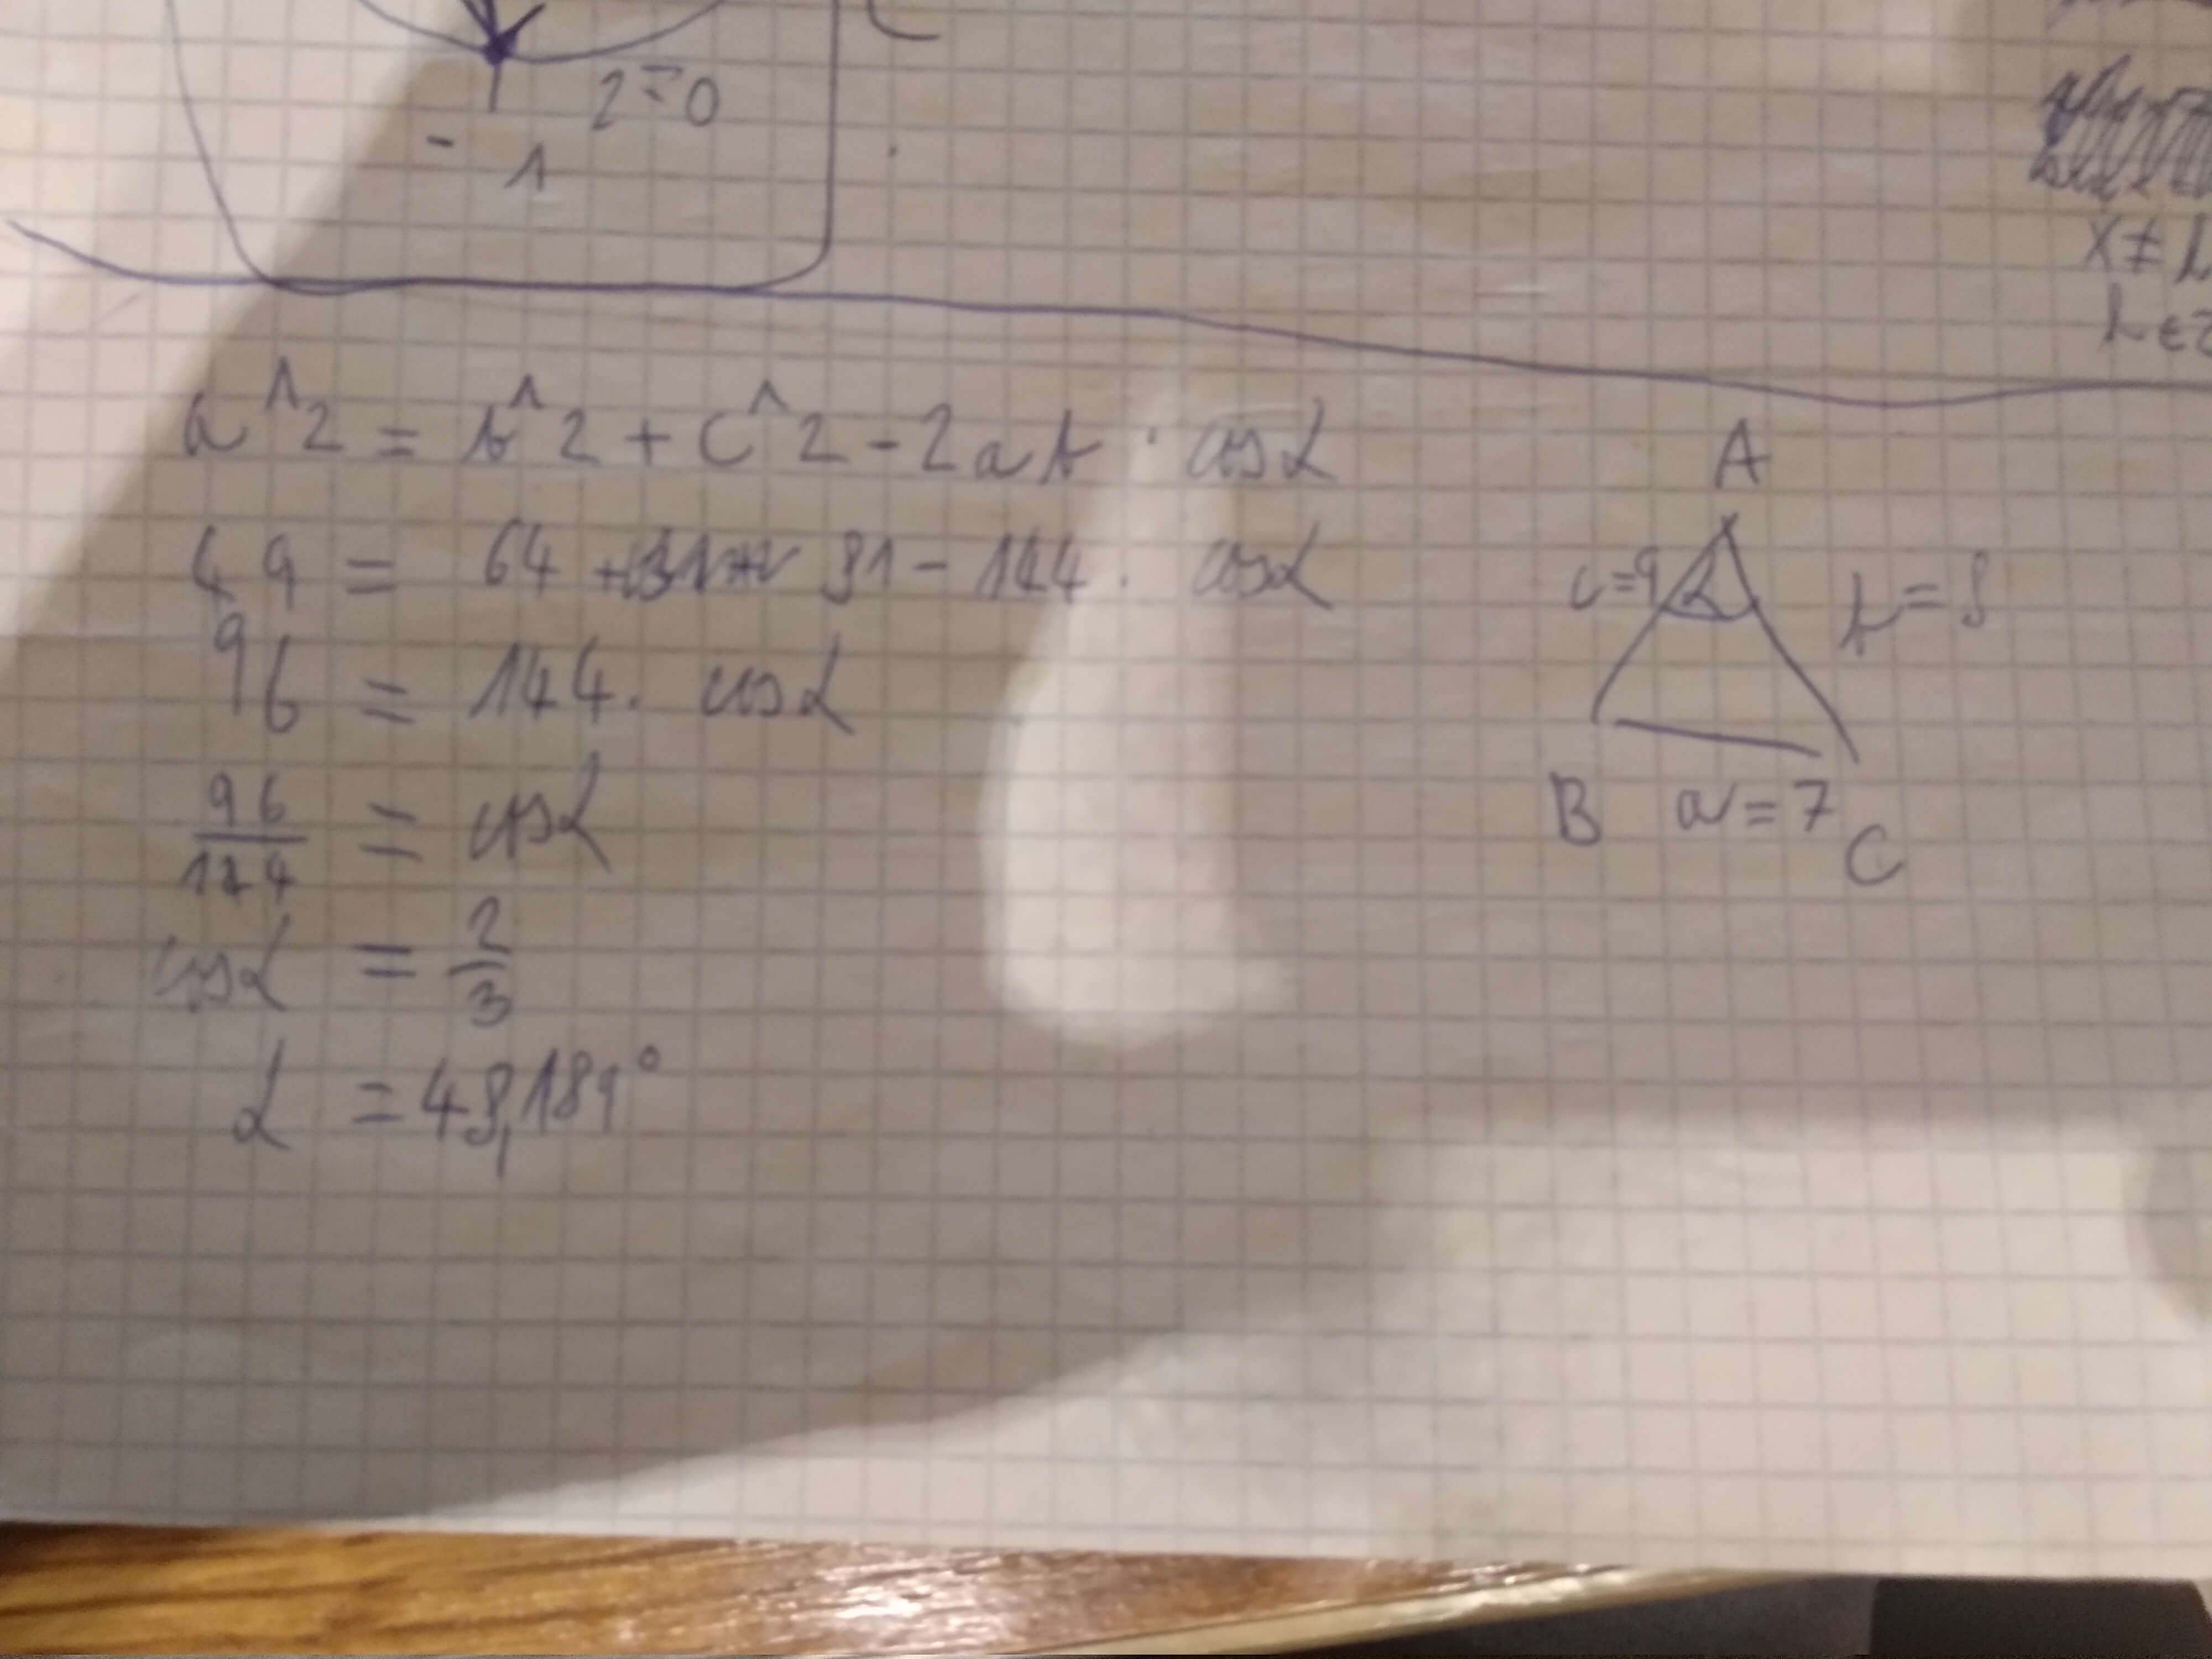 2=0
- 1
x ≠ k
k ∈ Z
a^2 = b^2 + c^2 - 2ab · cosα
49 = 64 + 81 - 144 · cosα
96 = 144 · cosα
96/144 = cosα
cosα = 2/3
α = 48,189°
A
c=9 α b=8
B a=7 C